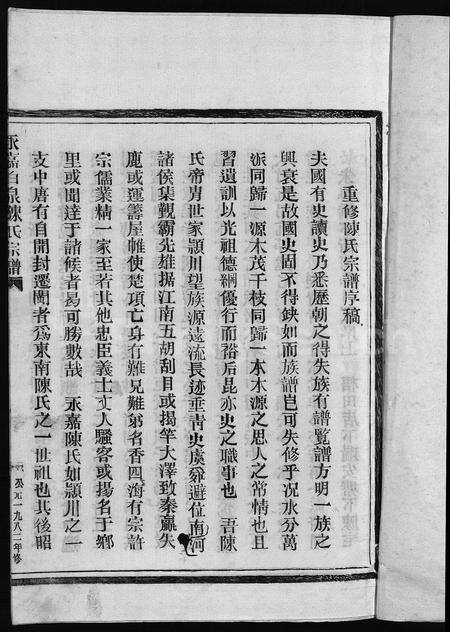 重修陳氏宗譜序稿
夫國有史讀史乃悉歷朝之得失族有譜覽譜方明一族之
興衰是故國史固不得缺如而族譜豈可失修乎況水分萬
派同歸一源木茂千枝同歸一本木本水源之思人之常情也且
習遺訓以光祖德綱優行而裕后昆亦史之職事也　吾陳
氏帝冑世家潁川望族源遠流長迹垂靑史虞舜避位南河
諸侯集覲霸先雄據江南五胡刮目或揭竿大澤致秦嬴失
鹿或運籌帷使楚項亡身有難兄難弟名香四海有宗許
宗儒業精一家至若其他忠臣義士丈人騷客或揚名于鄉
里或聞達于諸候者曷可勝數哉　永嘉陳氏如潁川之一
支中唐有自開封遷閩者爲東南陳氏之一世祖也其後昭
永嘉白泉陳氏宗譜
公元一九八二年修